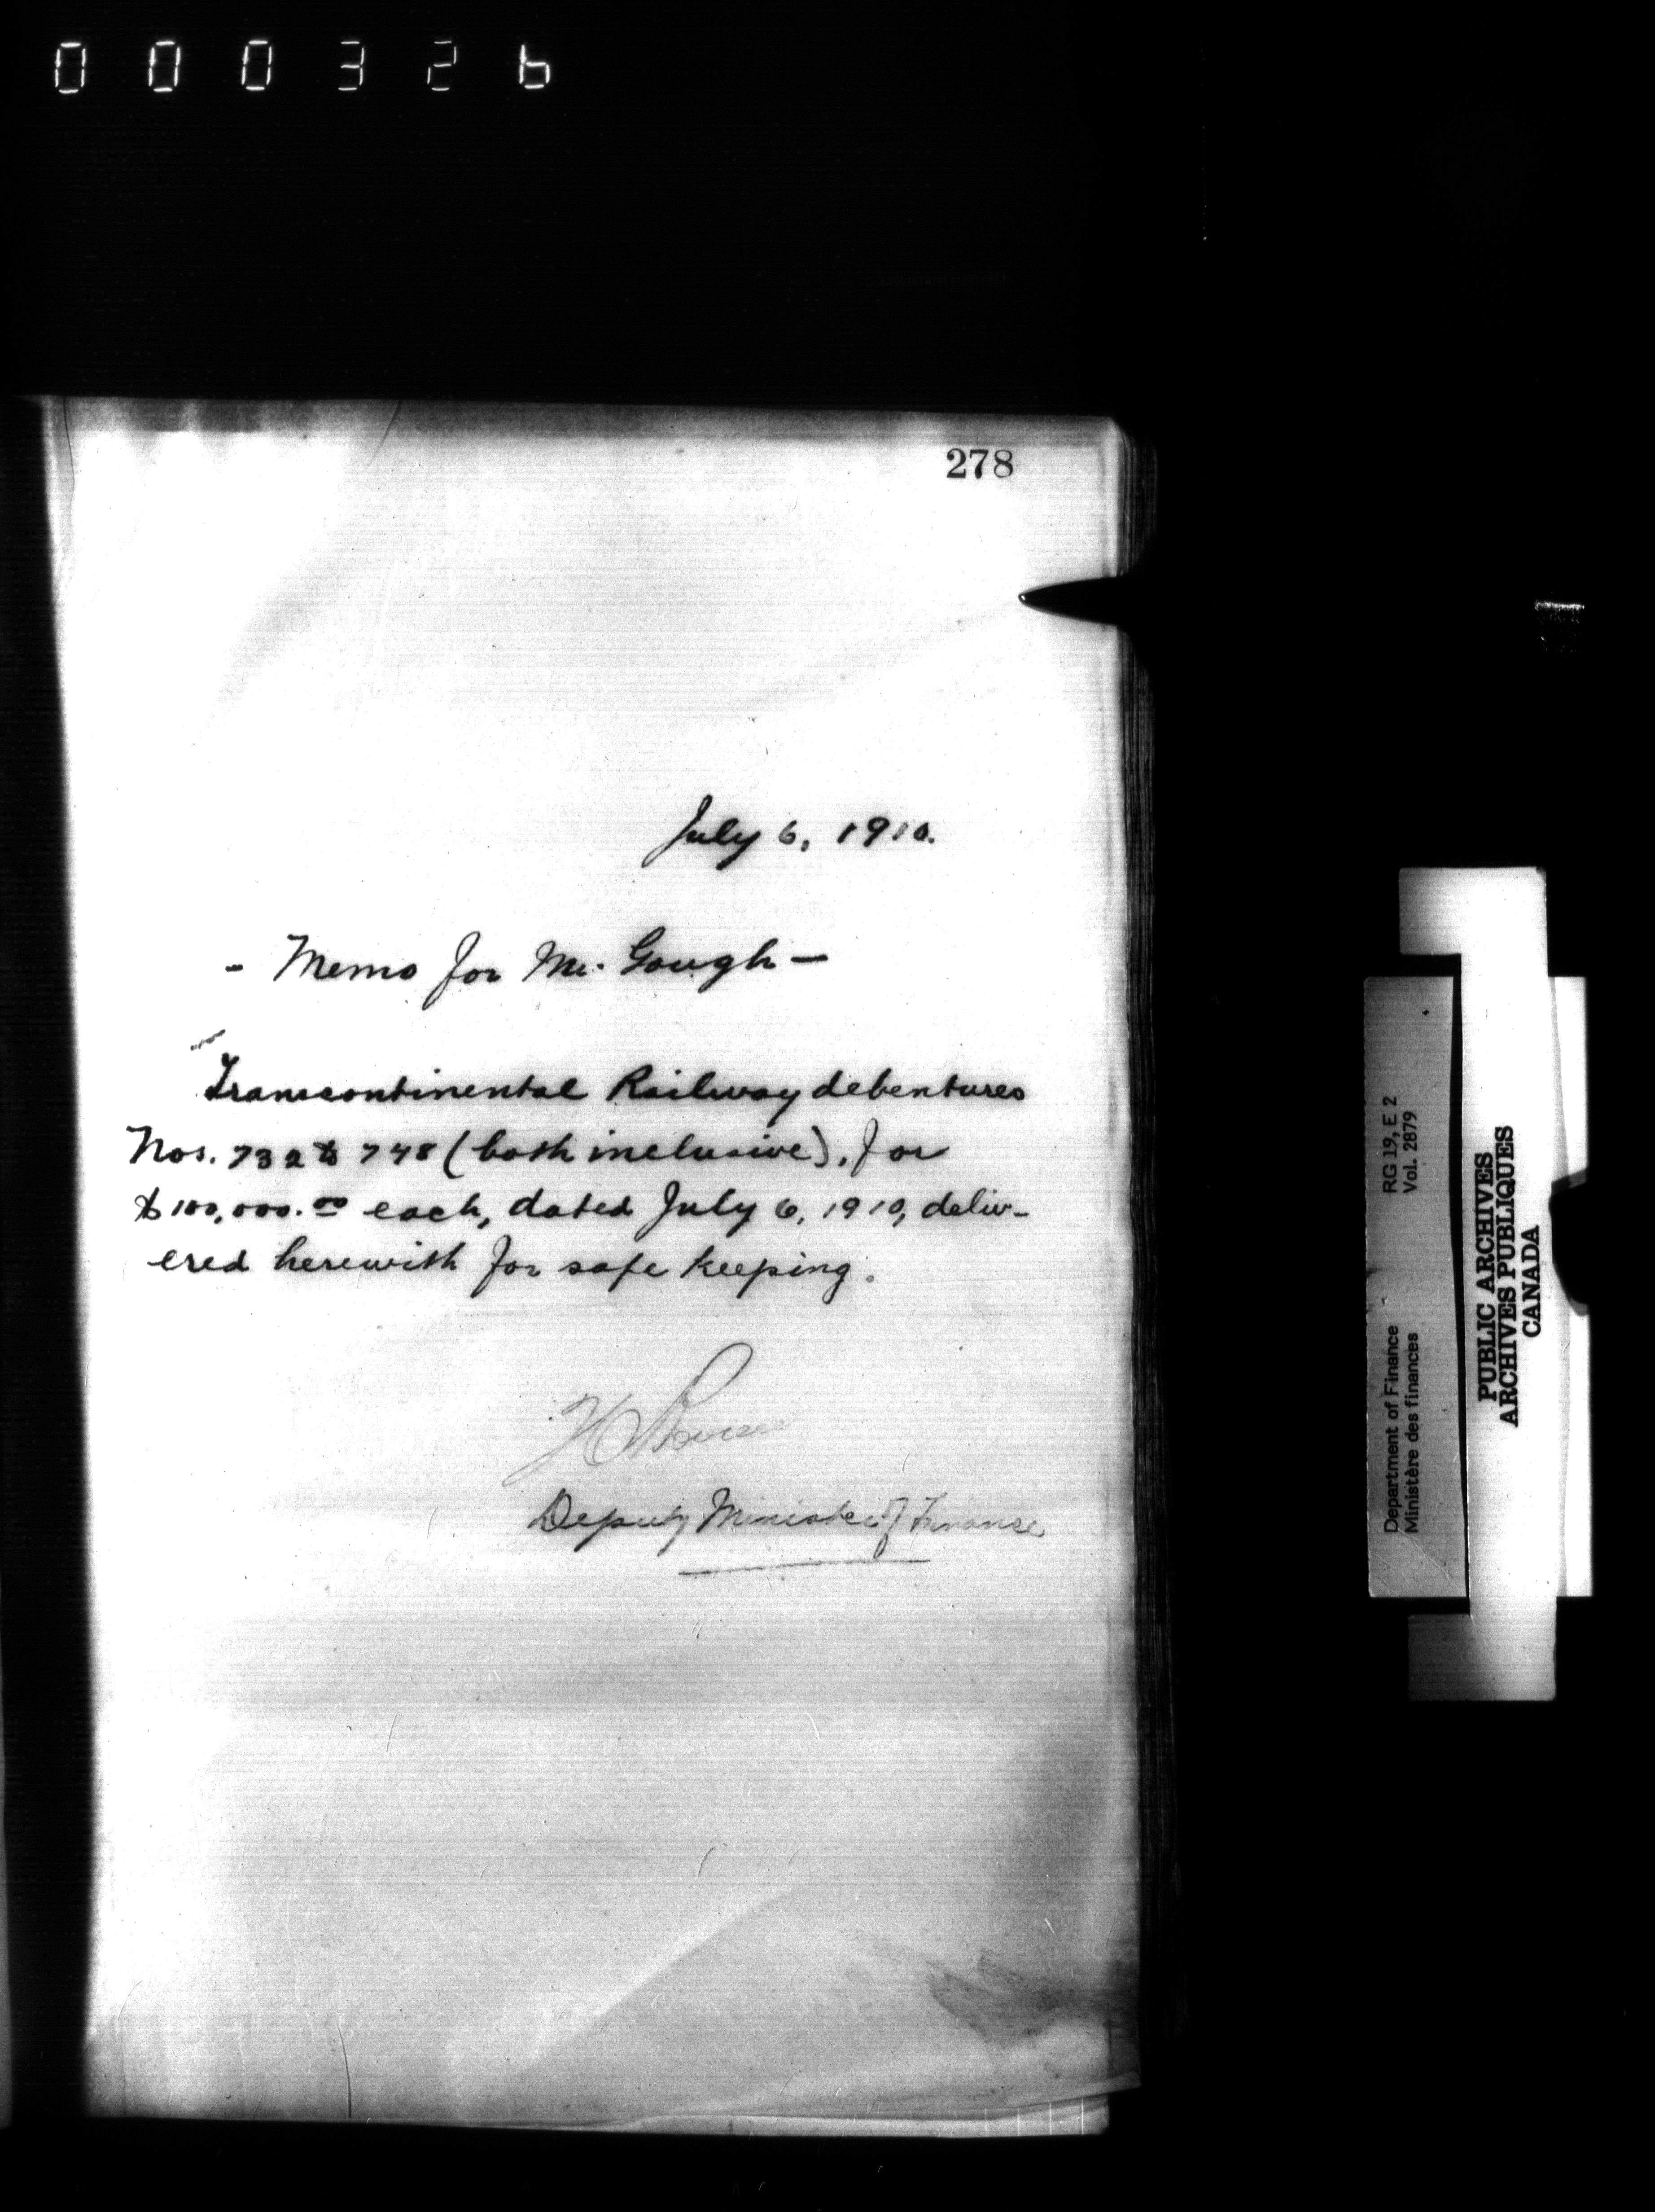 000326
278
July 6, 1910.
- Memo for Mr. Gough -
Transcontinental Railway debentures
Nos. 732 to 748 (both inclusive), for
$100,000.00 each, dated July 6, 1910, deliv-
ered herewith for safe keeping.
Deputy Minister of Finance
Department of Finance RG 19, E 2
Ministère des finances Vol. 2879
PUBLIC ARCHIVES
ARCHIVES PUBLIQUES
CANADA